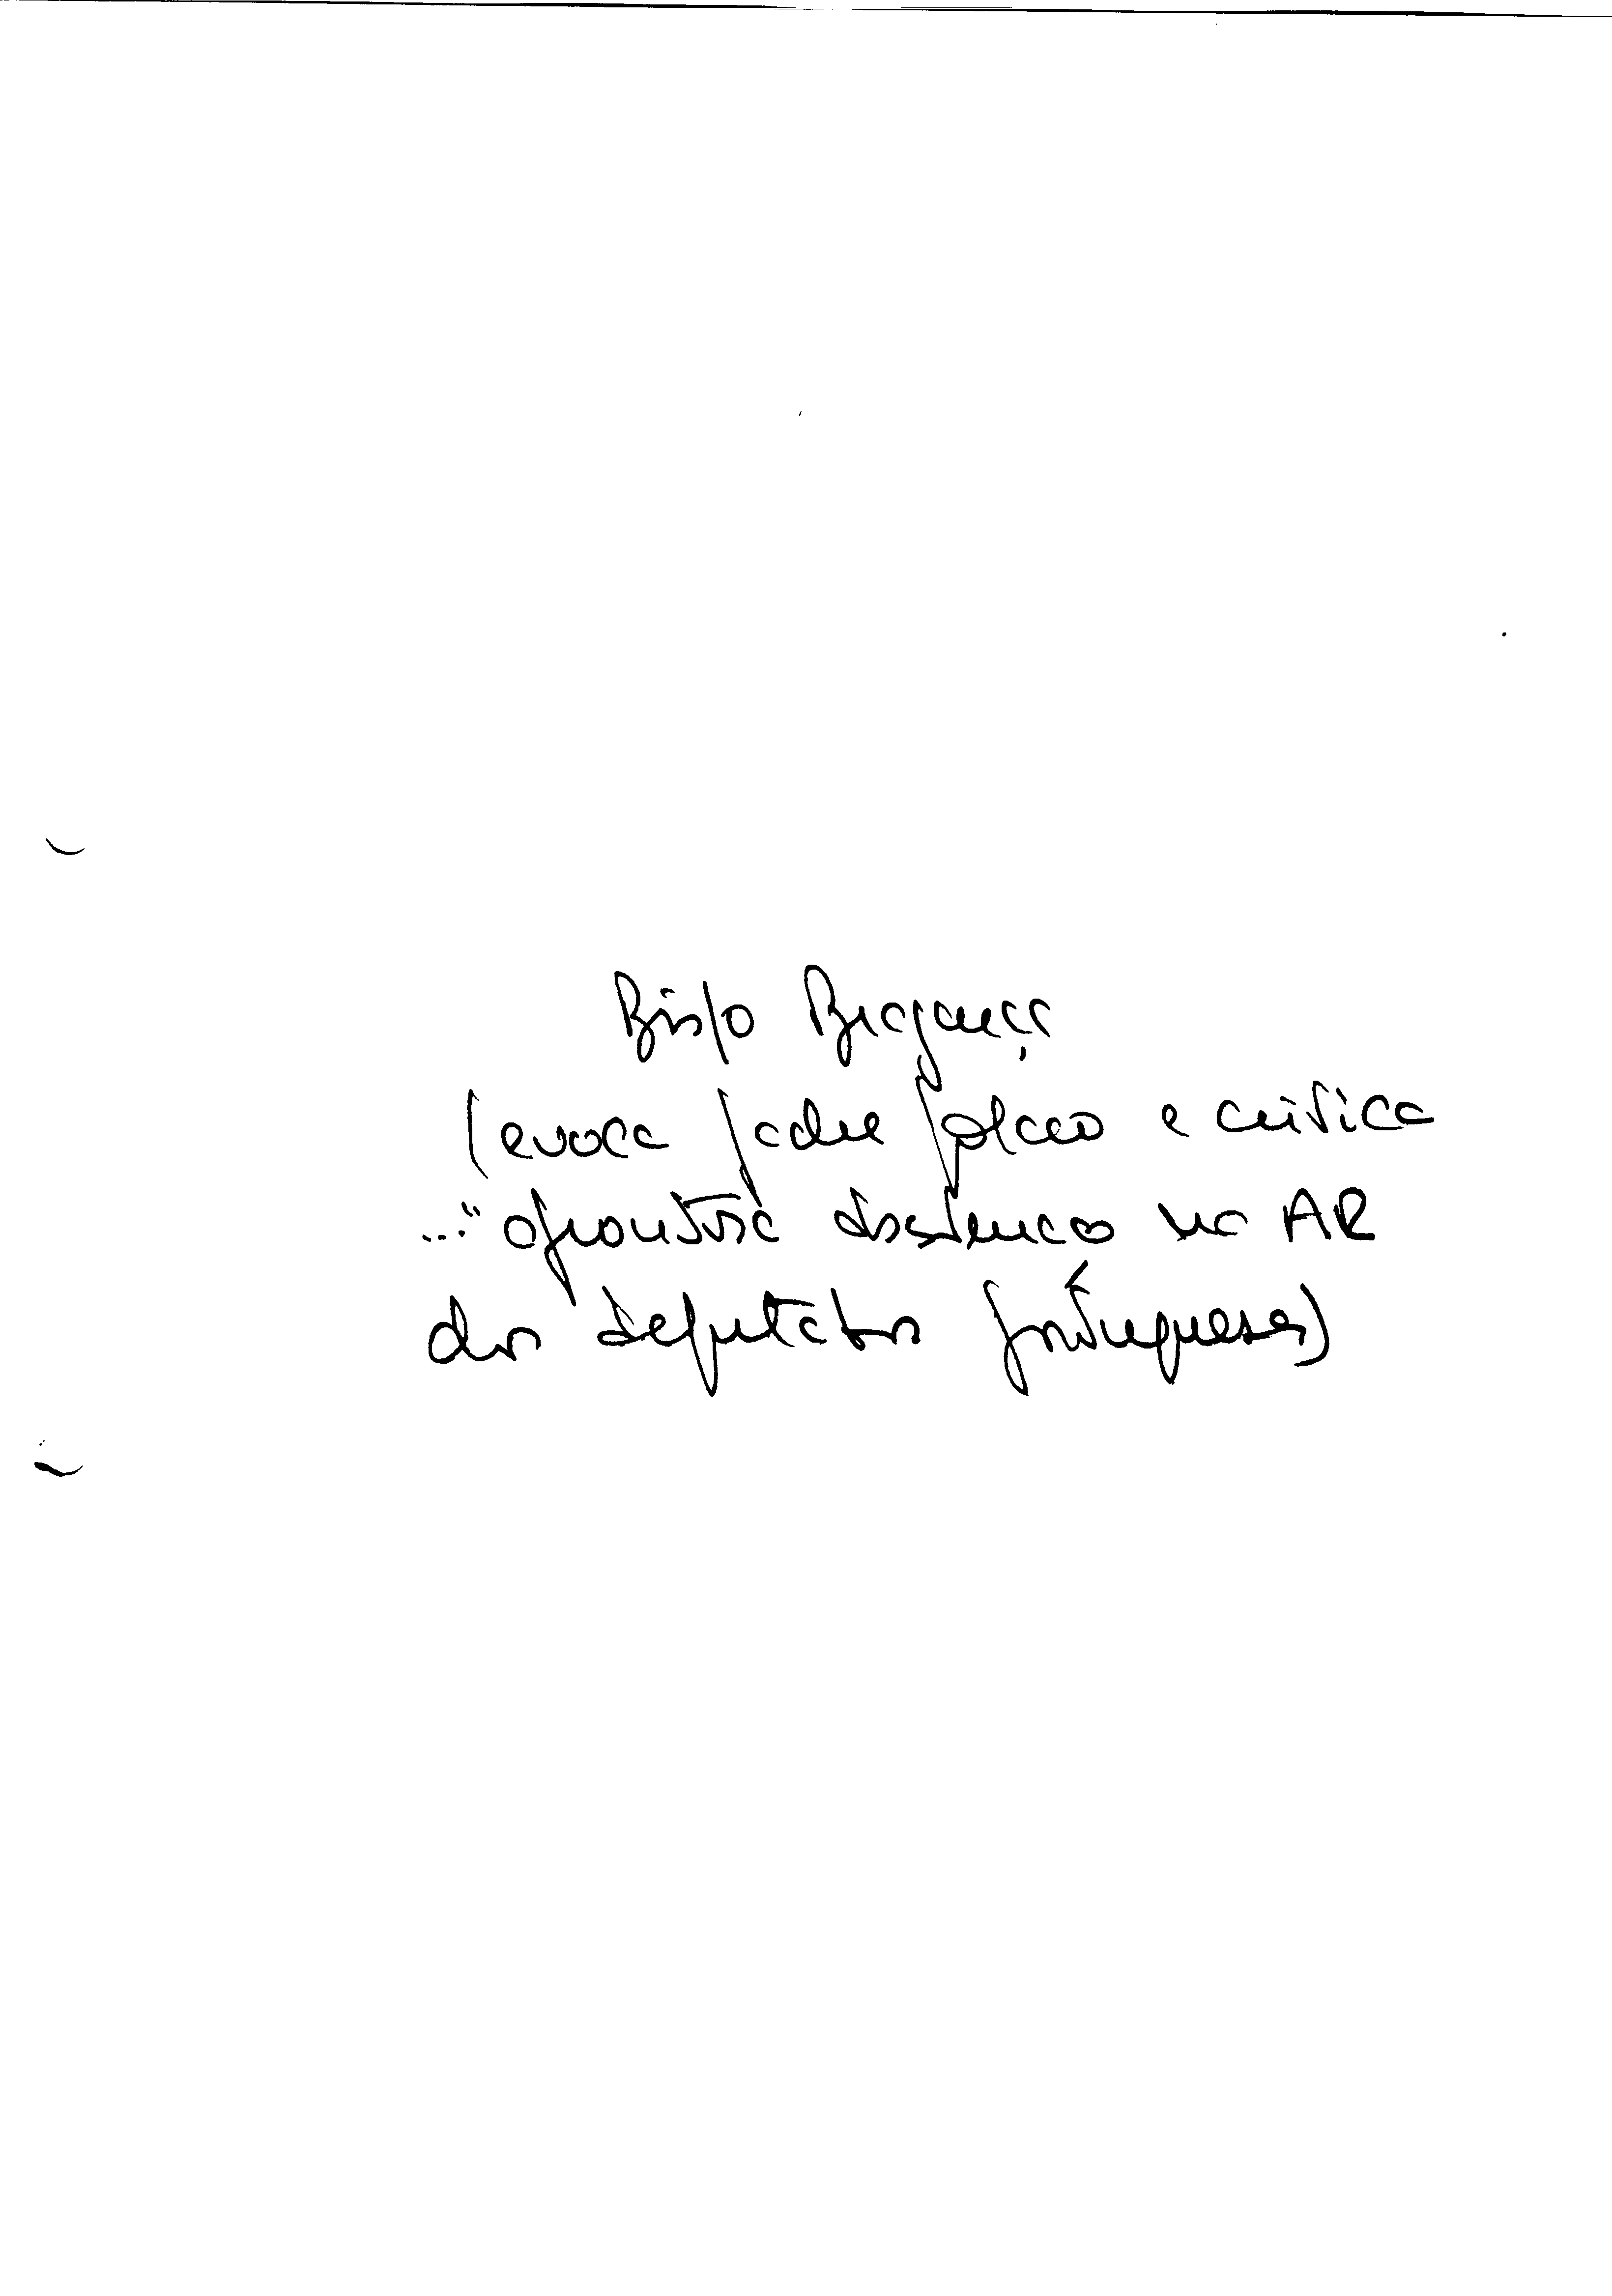 Bispo Bragança
(evoca padre polaco e critica
..." afrontosa dos na AR
dos deputados portugueses)